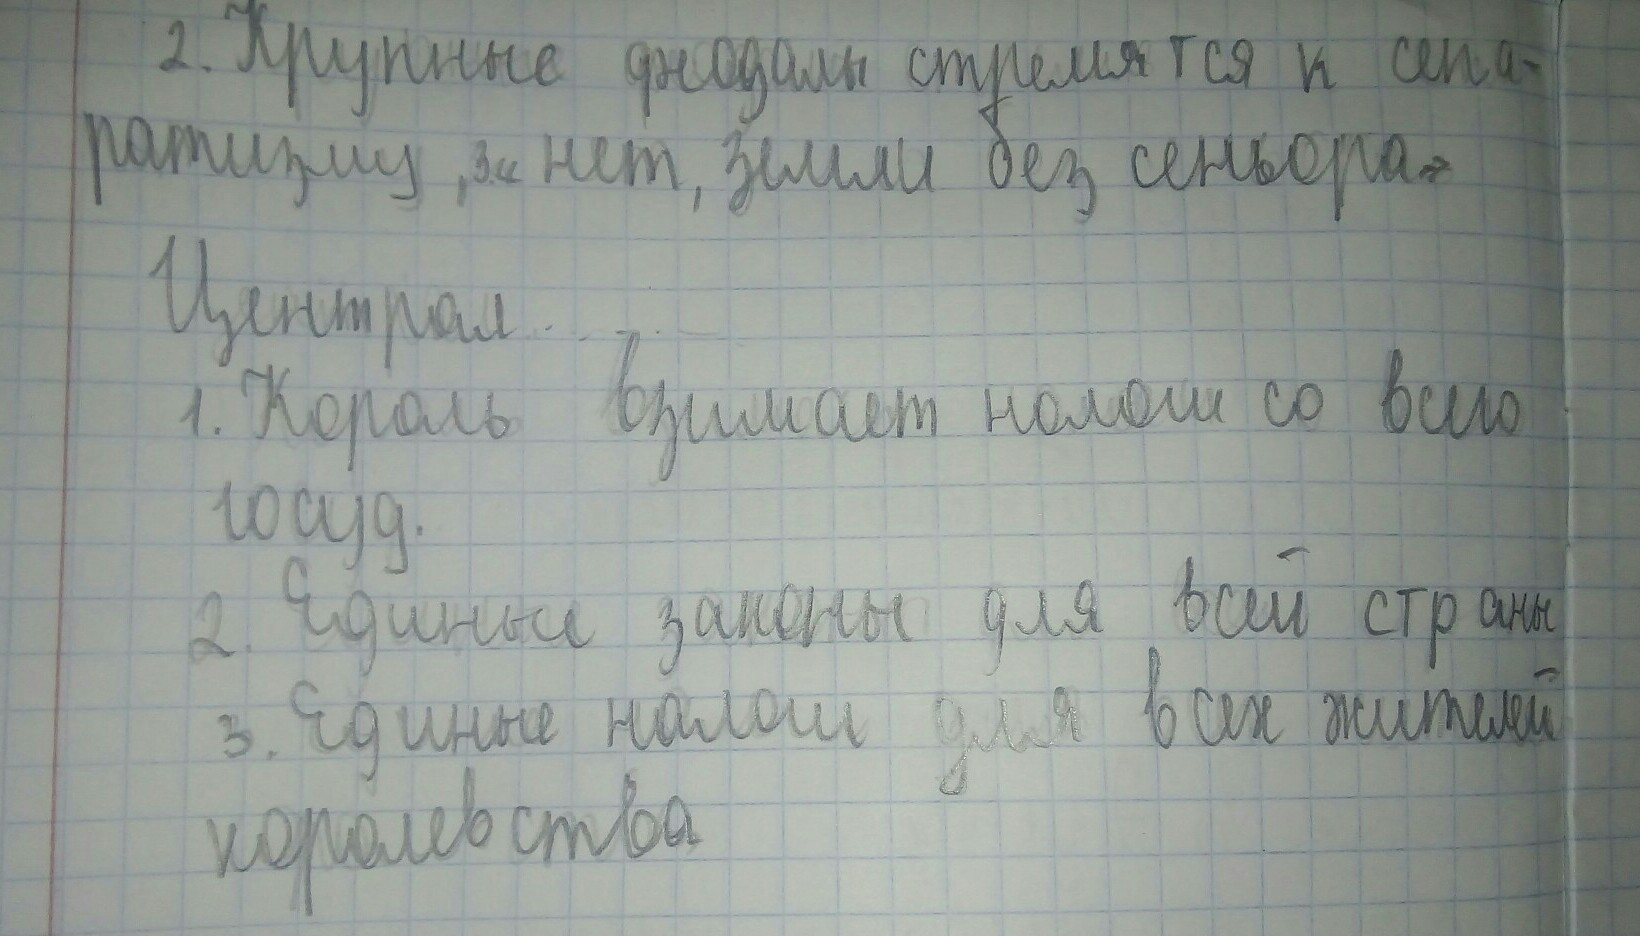 2. Крупные феодалы стремятся к сепа-
ратизму, 3. « нет, земли без сеньора»
Централ.....
1. Король взимает налоги со всего
госуд.
2. Единые законы для всей страны
3. Единые налоги для всех жителей
королевства